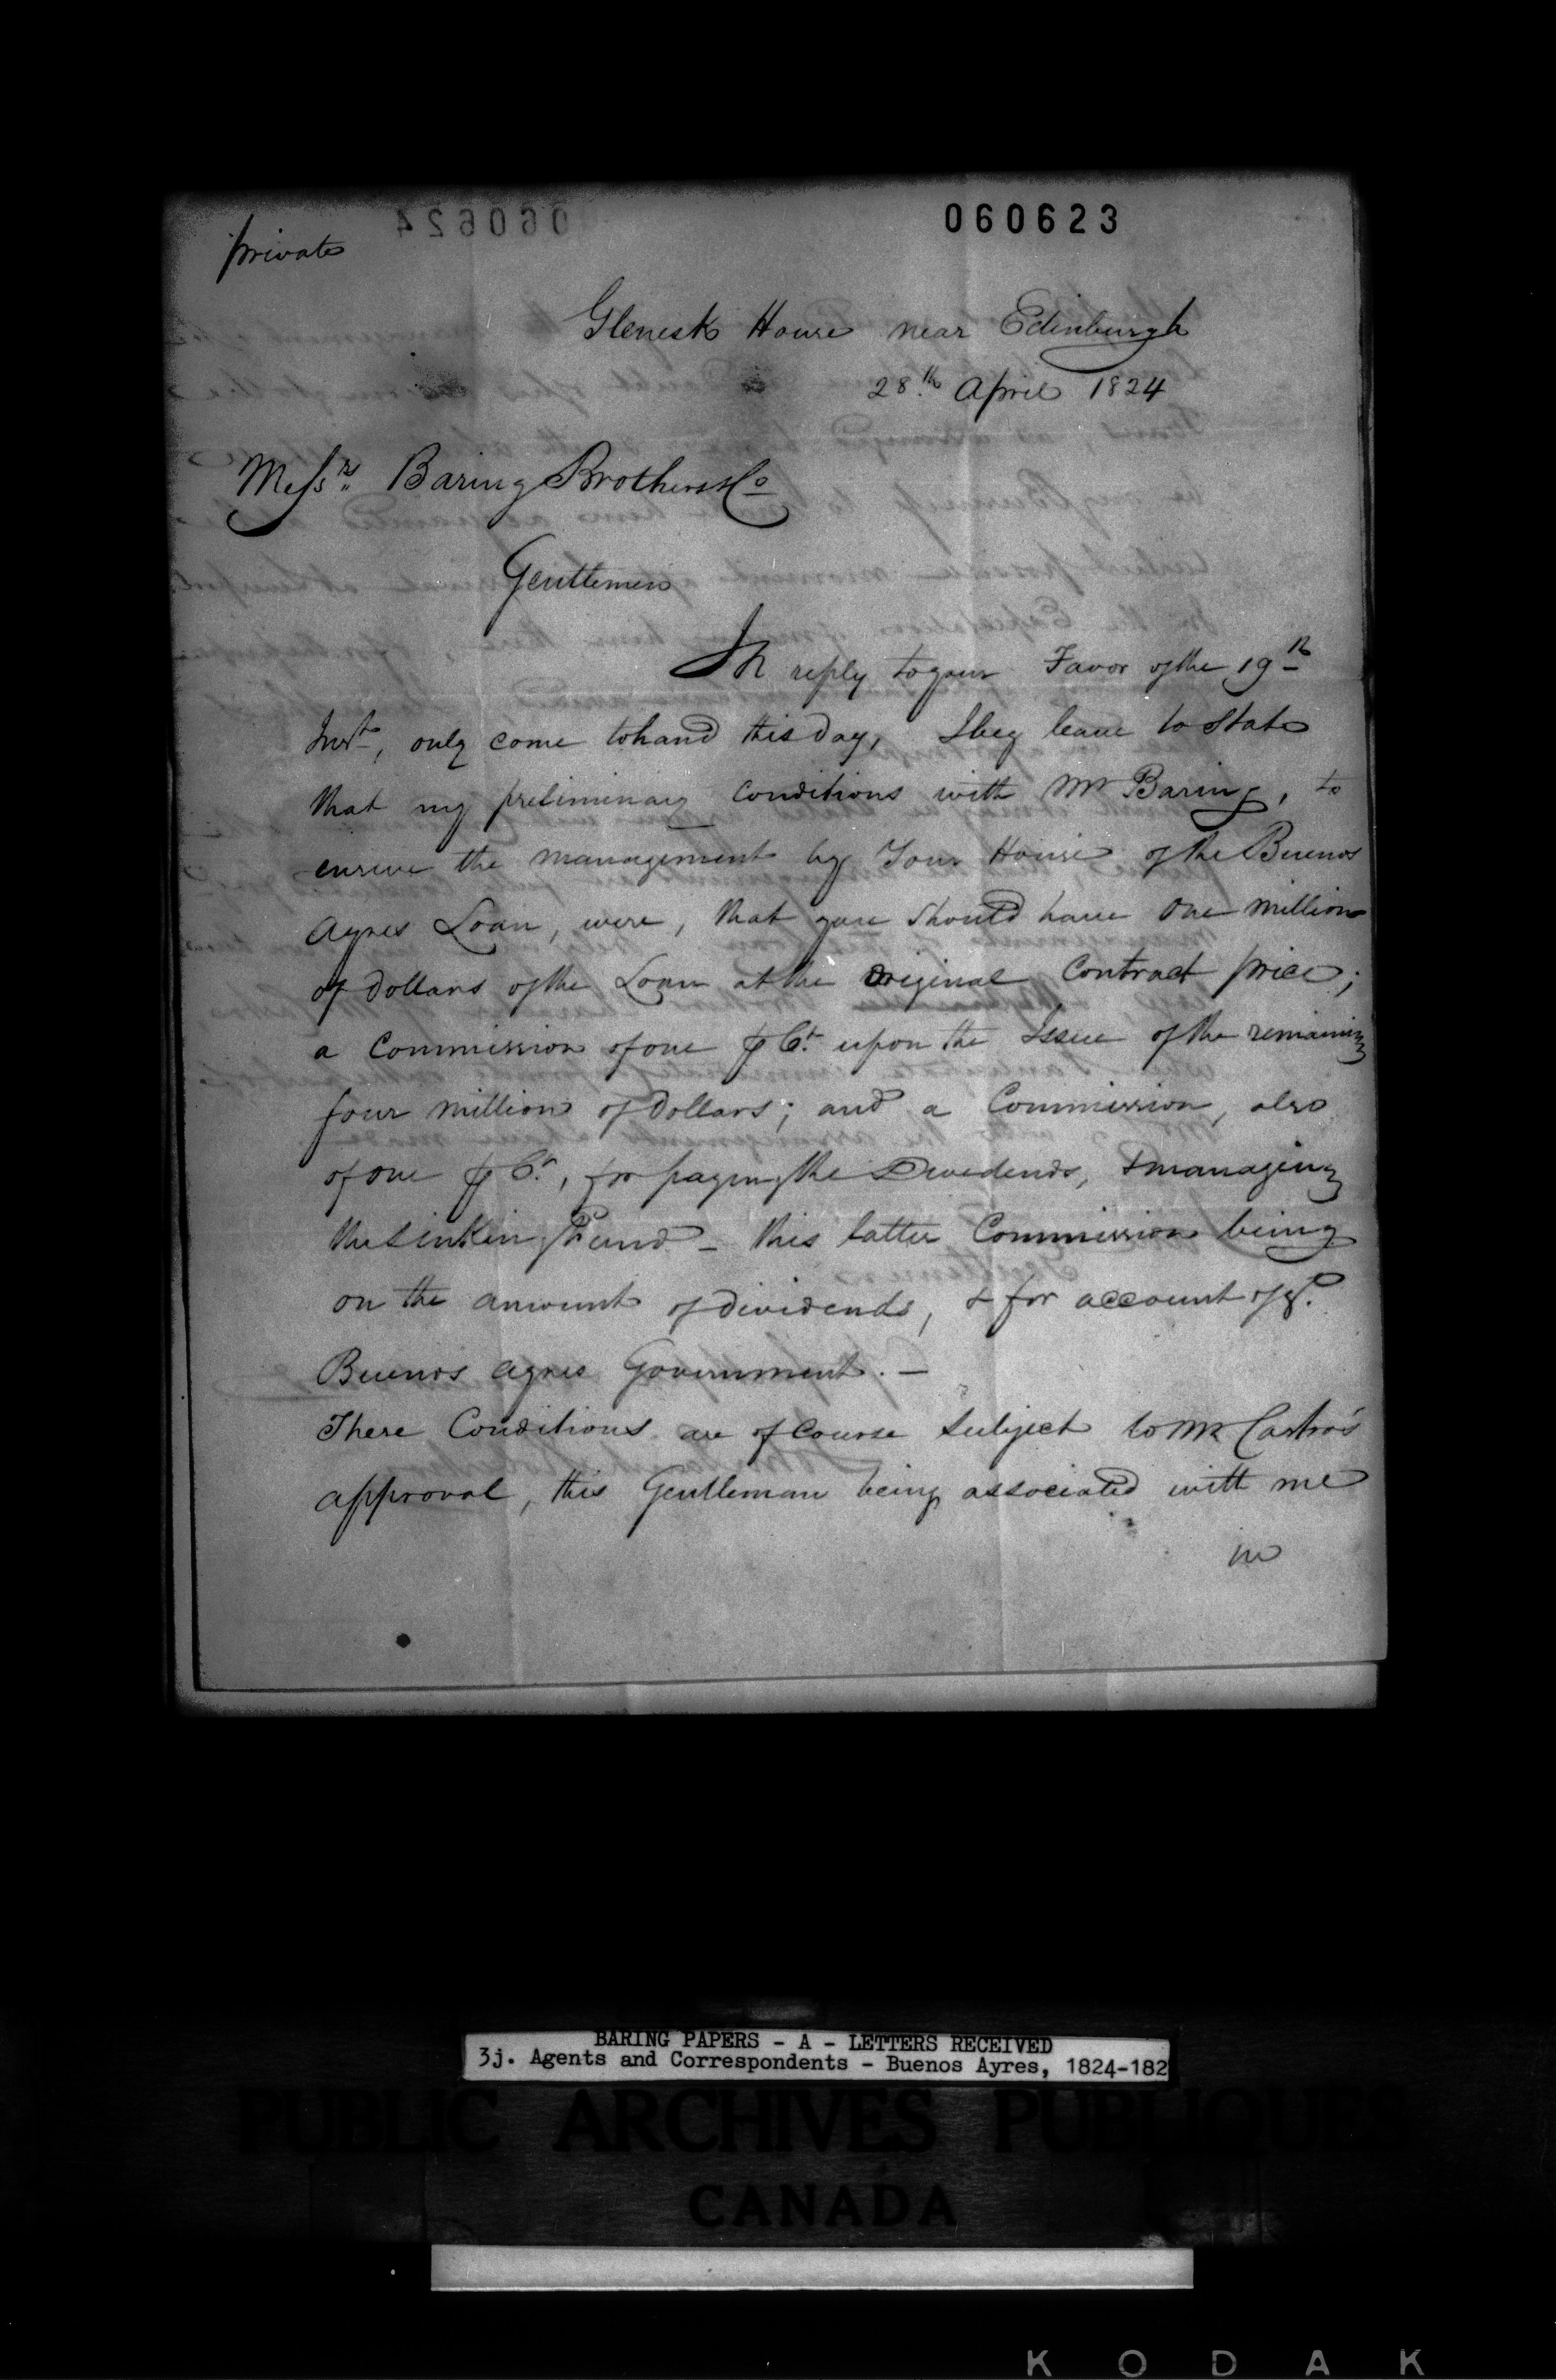 060623
private
Glenesk House near Edinburgh
28.th April 1824
Messrs. Baring Brothers & Co
Gentlemen
In reply to your Favor of the 19th
Inst, only come to hand this day, I beg leave to State
that my preliminary conditions with Mr Baring, to
ensure the management by Your House of the Buenos
Ayres Loan, were, that you should have One million
of Dollars of the Loan at the Original Contract price;
a Commission of one ⅌ Ct. upon the Issue of the remaining
four million of Dollars; and a Commission, also
of one ⅌ Ct., for paying the Dividends, & managing
the Sinking Fund – this latter Commission being
on the amount of dividends, & for account of
Buenos Ayres Government. –
These Conditions are of Course Subject to Mr Castro's
approval, this Gentleman being associated with me
in
BARING PAPERS - A - LETTERS RECEIVED
3j. Agents and Correspondents - Buenos Ayres, 1824-182
PUBLIC ARCHIVES PUBLIQUES
CANADA
KODAK